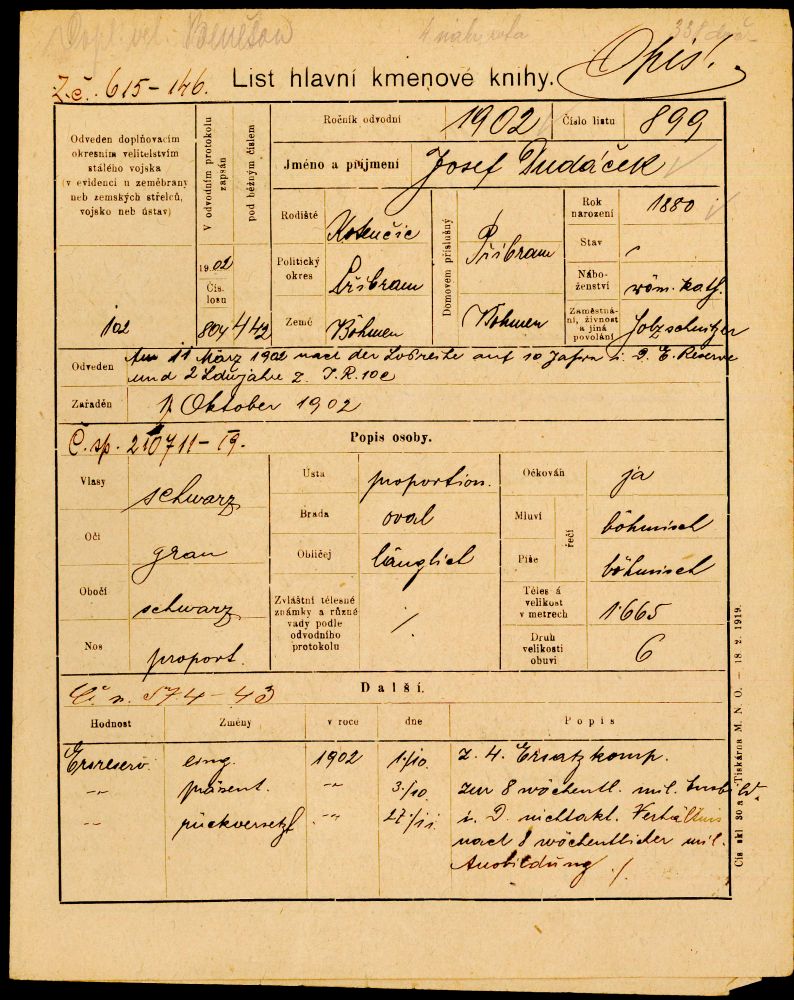 Dopl. vel. Benešov
Zč. 615-146.
List hlavní kmenové knihy.
Opis!
Odveden doplňovacím
okresním velitelstvím
stálého vojska
(v evidenci u zeměbrany
neb zemských střelců,
vojsko neb ústav)
V odvodním protokolu
zapsán
pod běžným číslem
Ročník odvodní 1902 Číslo listu 899
Jméno a příjmení Josef Dudáček
Rodiště
Politický
okres Příbram
Země Böhmen
Domovem příslušný
Příbram
Böhmen
Rok
narození 1880
Stav /
Nábo-
ženství röm. kath.
Zaměstná-
ní, živnost
a jiná
povolání Holzschnitzer
1902
Čís.
losu
102 804 442
Odveden Am 11 März 1902 nach der Losreihe auf 10 Jahre i. d. E. Reserve
und 2 Ldwjahre z. I.R. 102
Zařaděn 1 Oktober 1902
Č. sp. 210711-19.
Popis osoby.
Vlasy schwarz
Oči grau
Obočí schwarz
Nos proport.
Ústa proportion.
Brada oval
Obličej länglich
Zvláštní tělesné
známky a různé
vady podle
odvodního
protokolu /
Očkován ja
Mluví böhmisch
řečí
Píše böhmisch
Těles á
velikost
v metrech 1'665
Druh
velikosti
obuvi 6
Čí n. 574-43
Další.
Hodnost Změny v roce dne Popis
Ersreserv. eing. 1902 1./10. z. 4. Ersatzkomp.
-"- präsent. -"- 3./10. zur 8 wöchentl. mil. Ausbild.
-"- rückversetzt -"- 27./11. i. d. nichtakt. Verhältnis
nach 8 wöchentlicher mil.
Ausbildung ./.
Čís skl 30 a Tiskárna M. N. O. — 18. 2. 1919.